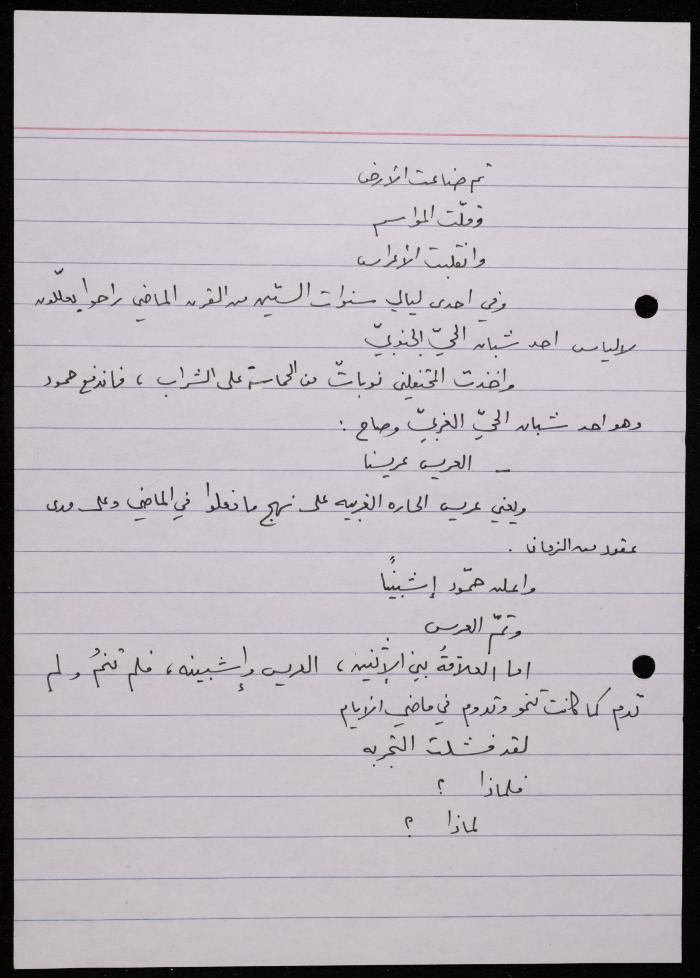 ثم ضاعت الأرض
وقلّت المواسم
وانقلبت الأعراس
وفي احدى ليالي سنوات الستين من القرن الماضي راحوا يعلّلون
لالياس احد شبان الحيّ الجنوبيّ
واخذت المحتفلين نوباتٌ من الحماسة على الشراب ، فاندفع حمود
وهو احد شبان الحيّ الغربيّ وصاح :
– العريس عريسنا
ويعني عريس الحاره الغربيه على نهج ما فعلوا في الماضي وعلى مدى
عقود من الزمان .
واعلن حمّود إشبينًا
وتمّ العرس
اما العلاقةُ بين الإثنين ، العريس وإشبينه ، فلم تنمُ ولم
تدم كما كانت تنمو وتدوم في ماضي الايام
لقد فشلت التجربه
فلماذا ؟
لماذا ؟